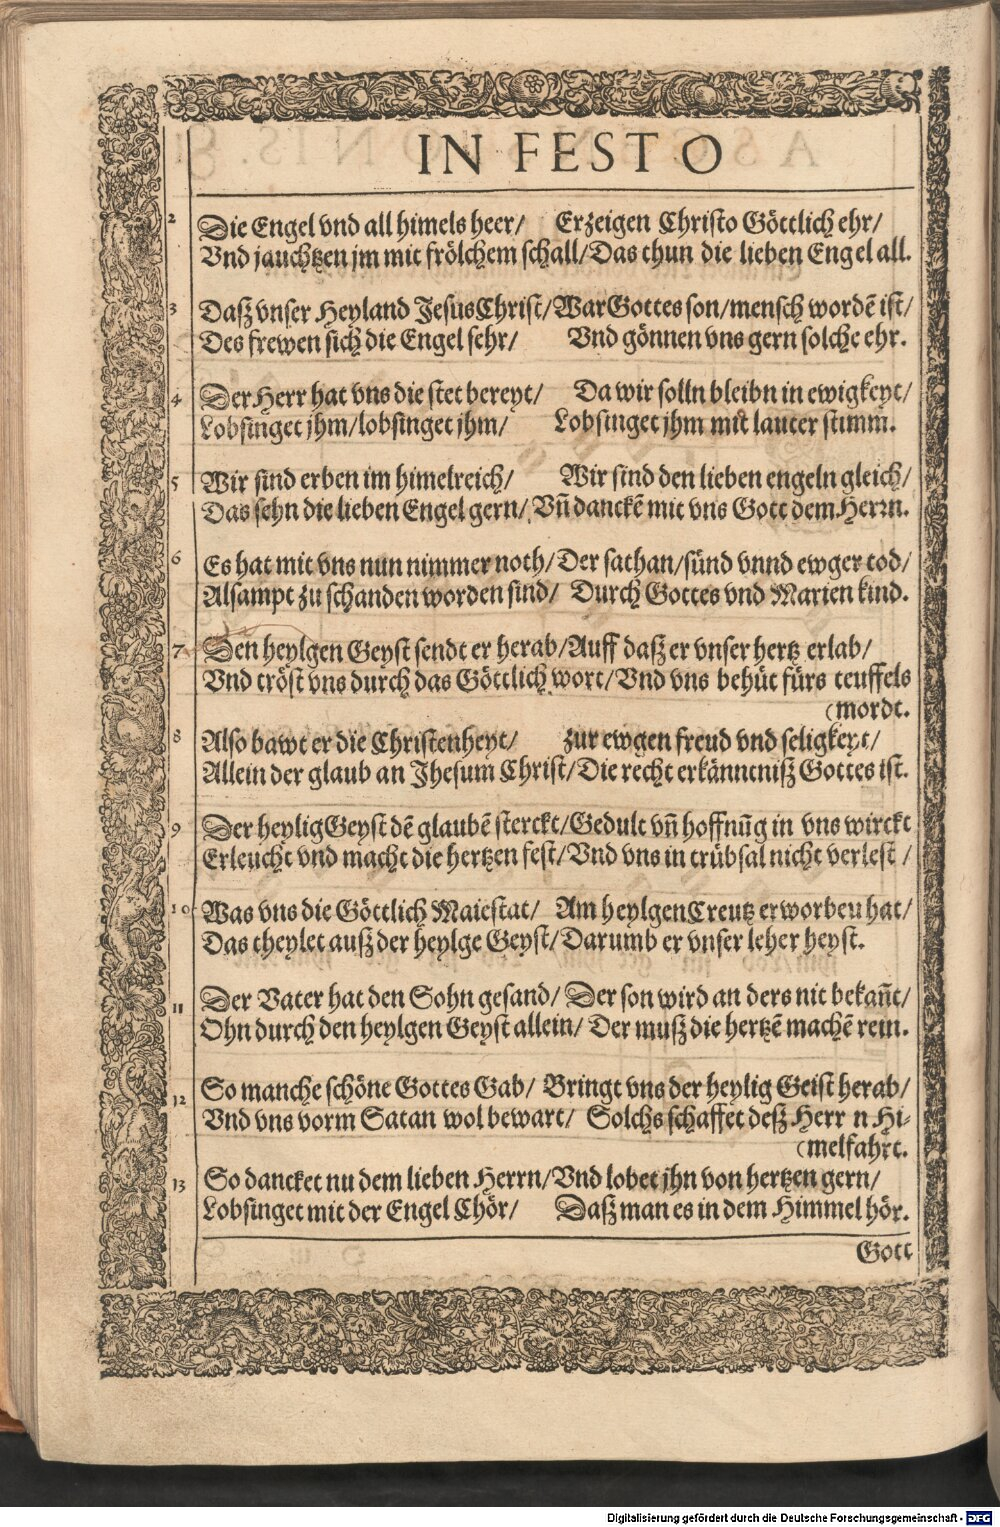 IN FESTO
2 Die Engel vnd all himels heer/ Erzeigen Christo Göttlich ehr/
Vnd jauchtzen jm mit frölchem schall/ Das thun die lieben Engel all.
3 Dasz vnser Heyland Jesus Christ/ War Gottes son/ mensch wordē ist/
Des frewen sich die Engel sehr/ Vnd gönnen vns gern solche ehr.
4 Der Herr hat vns die stet bereyt/ Da wir solln bleibn in ewigkeyt/
Lobsinget jhm/ lobsinget jhm/ Lobsinget jhm mit lauter stimm.
5 Wir sind erben im himelreich/ Wir sind den lieben engeln gleich/
Das sehn die lieben Engel gern/ Vñ danckē mit vns Gott dem Herrn.
6 Es hat mit vns nun nimmer noth/ Der sathan/ sünd vnnd ewger tod/
Alsampt zu schanden worden sind/ Durch Gottes vnd Marien kind.
7 Den heylgen Geyst sendt er herab/ Auff dasz er vnser hertz erlab/
Vnd tröst vns durch das Göttlich wort/ Vnd vns behüt fürs teuffels
(mordt.
8 Also bawt er die Christenheyt/ zur ewgen freud vnd seligkeyt/
Allein der glaub an Jhesum Christ/ Die recht erkänntnisz Gottes ist.
9 Der heylig Geyst dē glaubē sterckt/ Gedult vñ hoffnūg in vns wirckt
Erleucht vnd macht die hertzen fest/ Vnd vns in trübsal nicht verlest /
10 Was vns die Göttlich Maiestat/ Am heylgen Creutz erworben hat/
Das theylet ausz der heylge Geyst/ Darumb er vnser leher heyst.
11 Der Vater hat den Sohn gesand/ Der son wird an ders nit bekañt/
Ohn durch den heylgen Geyst allein/ Der musz die hertzē machē rein.
12 So manche schöne Gottes Gab/ Bringt vns der heylig Geist herab/
Vnd vns vorm Satan wol bewart/ Solchs schaffet desz Herr n Hi-
(melfahrt.
13 So dancket nu dem lieben Herrn/ Vnd lobet jhn von hertzen gern/
Lobsinget mit der Engel Chör/ Dasz man es in dem Himmel hör.
Gott
Digitalisierung gefördert durch die Deutsche Forschungsgemeinschaft - DFG